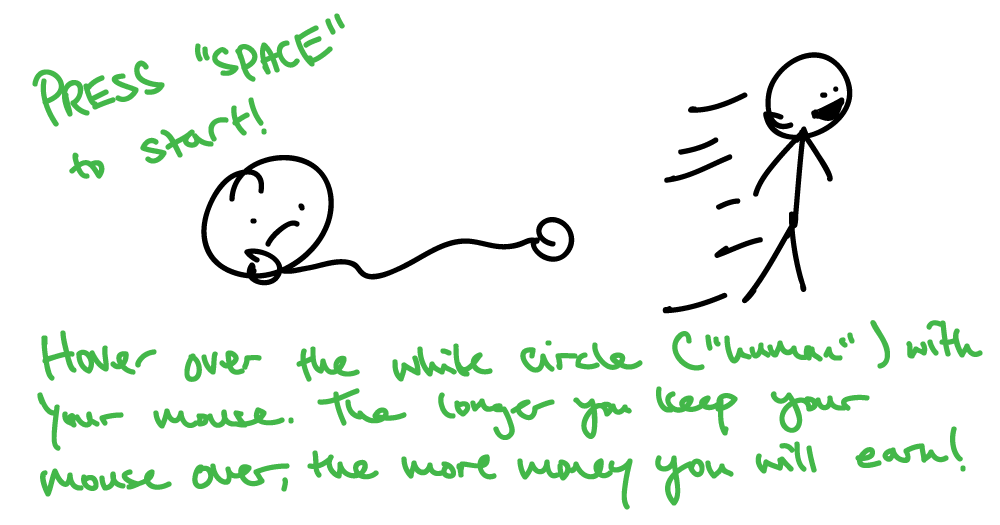 PRESS "SPACE"
to start!
Hover over the white circle ("human") with
your mouse. The longer you keep your
mouse over, the more money you will earn!